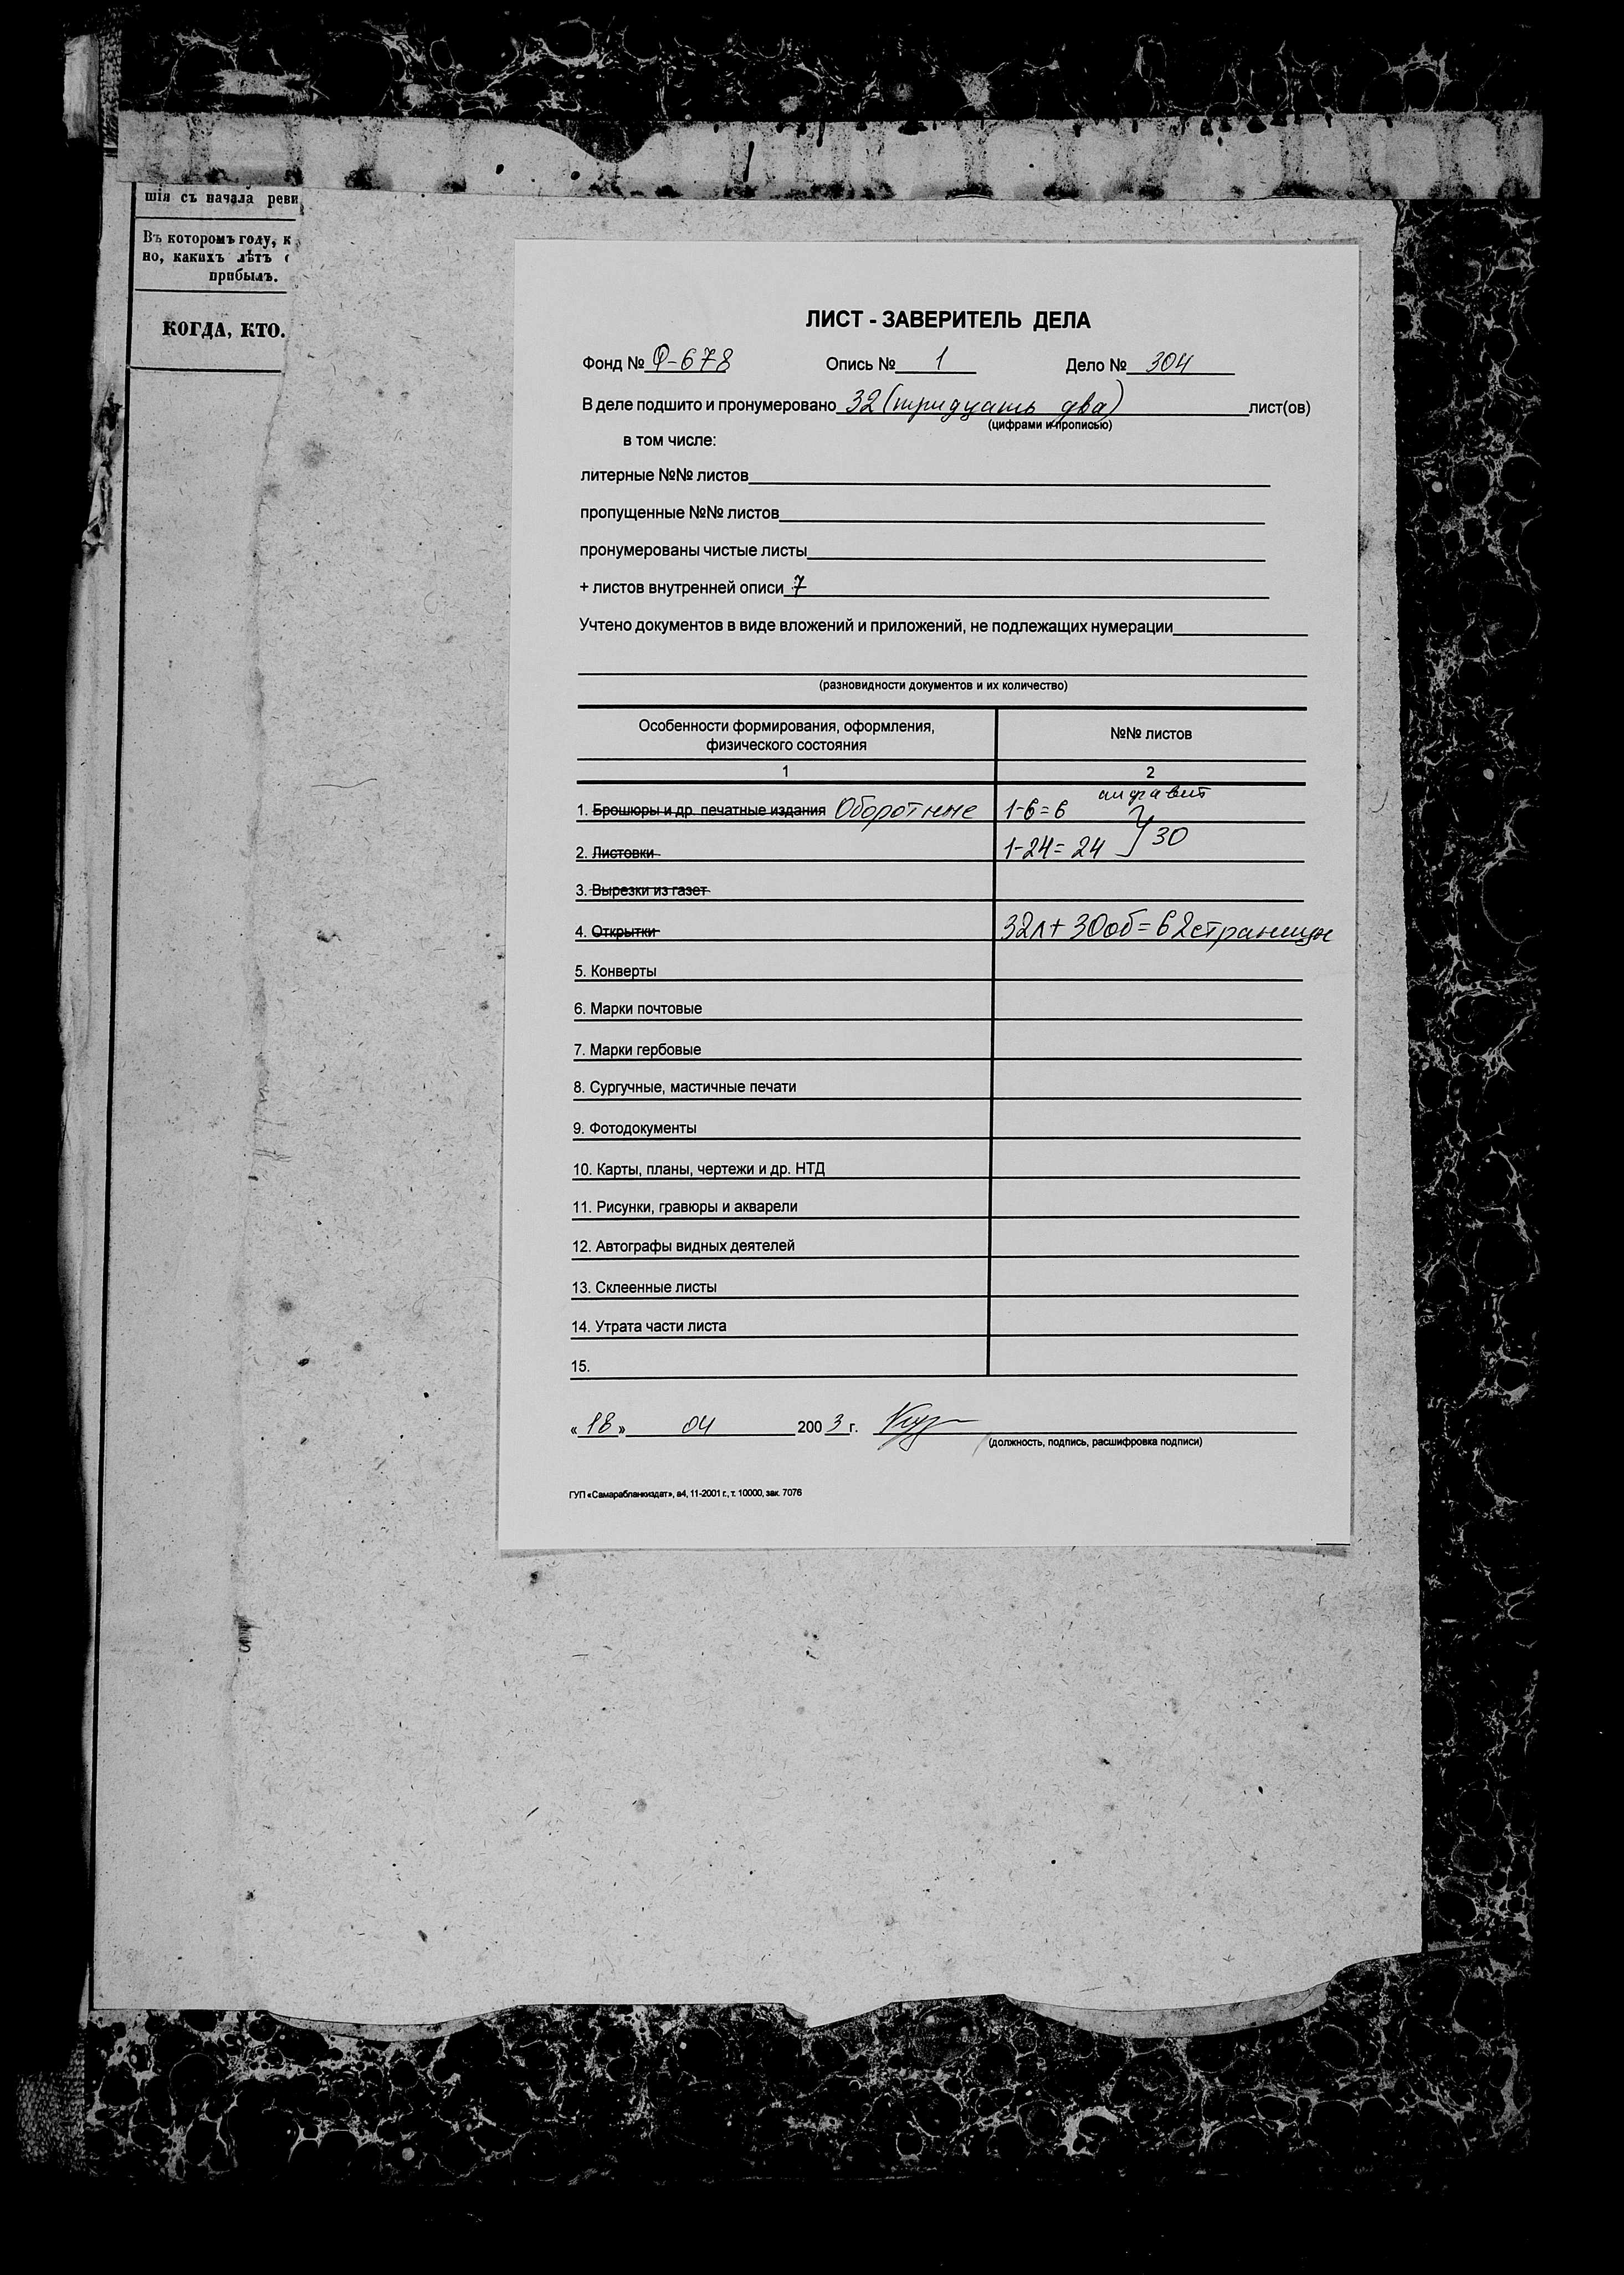 шія съ начала реви
Въ которомъ году, к
но, какихъ лѣтъ
прибылъ.
КОГДА, КТО.
ЛИСТ - ЗАВЕРИТЕЛЬ ДЕЛА
Фонд № Ф-678 Опись № 1 Дело № 304
В деле подшито и пронумеровано 32 (тридцать два) лист(ов)
(цифрами и прописью)
в том числе:
литерные №№ листов
пропущенные №№ листов
пронумерованы чистые листы
+ листов внутренней описи 7
Учтено документов в виде вложений и приложений, не подлежащих нумерации
(разновидности документов и их количество)
Особенности формирования, оформления, физического состояния №№ листов
1 2
алфавит
1. Брошюры и др. печатные издания Оборотные 1-6=6
2. Листовки 1-24=24 } 30
3. Вырезки из газет
4. Открытки 32л+30об=62страницы
5. Конверты
6. Марки почтовые
7. Марки гербовые
8. Сургучные, мастичные печати
9. Фотодокументы
10. Карты, планы, чертежи и др. НТД
11. Рисунки, гравюры и акварели
12. Автографы видных деятелей
13. Склеенные листы
14. Утрата части листа
15.
«18» 04 2003 г.
(должность, подпись, расшифровка подписи)
ГУП «Самарабланкиздат», а4, 11-2001 г., т. 10000, зак. 7076